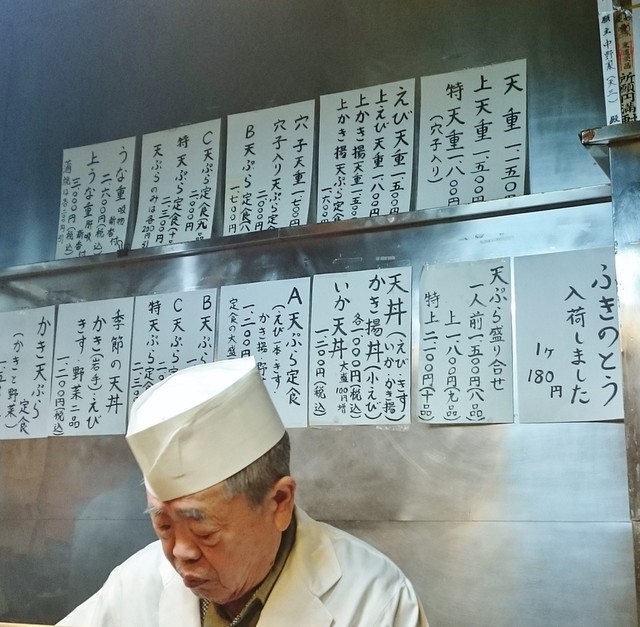 天重 一、一五〇円
上天重 一、五〇〇円
特天重 一、八〇〇円
(穴子入り)
えび天重 一、五〇〇円
上えび天重 一、八〇〇円
かき揚天重 一、一五〇円
上かき揚天ぷら定食
一、六〇〇円
穴子天重 一、七〇〇円
穴子入り天ぷら定食
二、〇〇〇円
B 天ぷら定食
一、七〇〇円
C 天ぷら定食
二、〇〇〇円
特天ぷら定食
二、三〇〇円
天ぷらのみは各
うな重 吸物 新香付
二、六〇〇円(税込)
上うな重 肝吸 新香付
三、〇〇〇円(税込)
ふきのとう
入荷しました
1ヶ
180円
天ぷら盛り合せ
一人前 一、五〇〇円(八品)
上 一、八〇〇円(九品)
特上 二、一〇〇円(十品)
天丼(えび・きす)
(いか・かき揚)
かき揚丼(小えび)
各一、〇〇〇円(税込)
いか天丼 大盛100円増
一、二〇〇円(税込)
A 天ぷら定食
(えび二本・きす)
かき揚
一、二〇〇円
定食の大盛
B 天ぷら
C 天ぷら
特天ぷら定
季節の天丼
かき(岩手)・えび
きす 野菜二品
一、二〇〇円(税込)
かき天ぷら
定食
(かきと野菜)